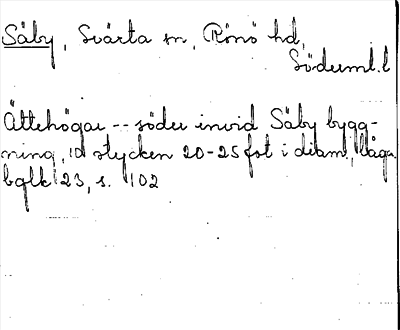 Säby, Svärta sn, Rönö hd,
Söderml. l
Ättehögar -- söder invid Säby bygg-
ning, 10 stycken 20-25 fot i diam., låga.
bglk 23, s. 102